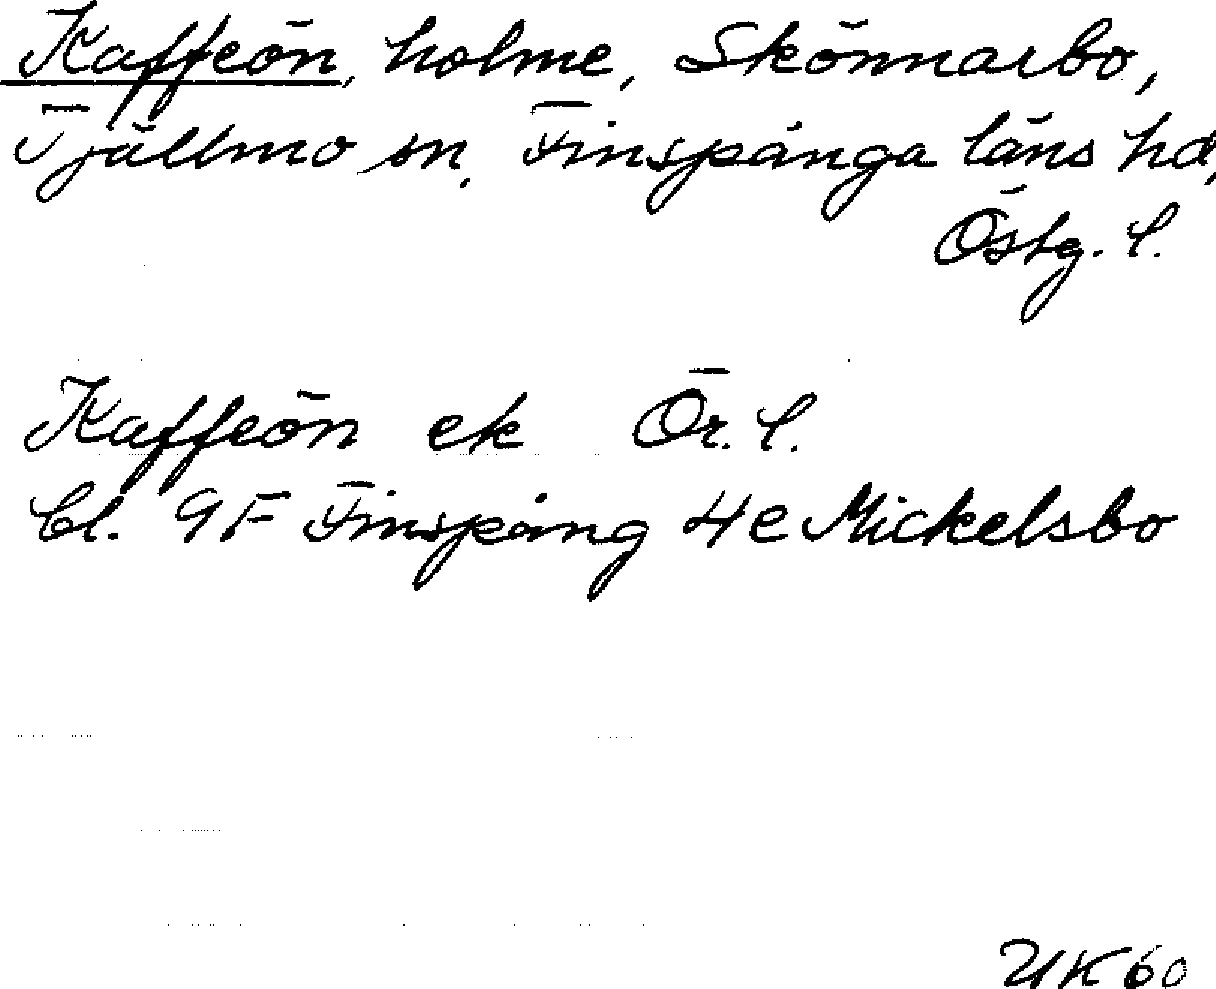 Kaffeön, holme, Skönnarbo,
Tjällmo sn, Finspånga läns hd,
Östg. l.
Kaffeön ek Ör. l.
bl. 9F Finspång 4e Mickelsbo
UK 60